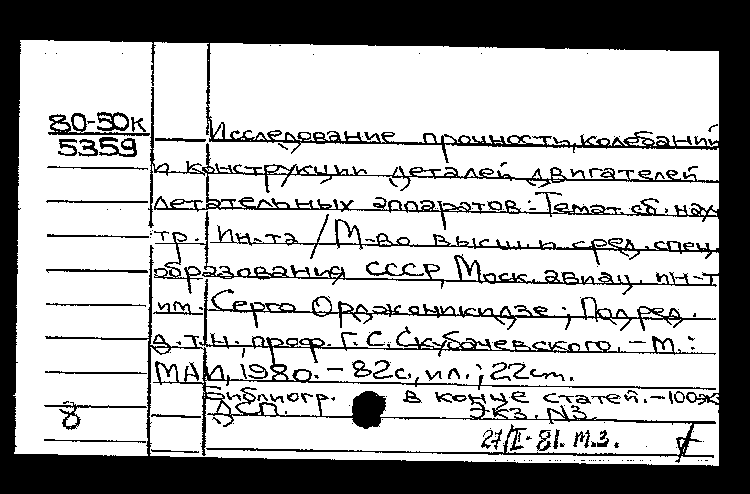 80-50к
5359
Исследование прочности, колебаний
и конструкции деталей двигателей
летательных аппаратов: Темат. сб. науч
тр. Ин-та / М-во высш. и сред. спец.
образования СССР, Моск. авиац. ин-т
им. Серго Орджоникидзе; Под ред.
д.т.н., проф. Г.С. Скубачевского. – М.:
МАИ, 1980. – 82с., ил.; 22см.
Библиогр. в конце статей. – 100экз
ДСП. Экз. N3.
8
27/II-81. т.з.